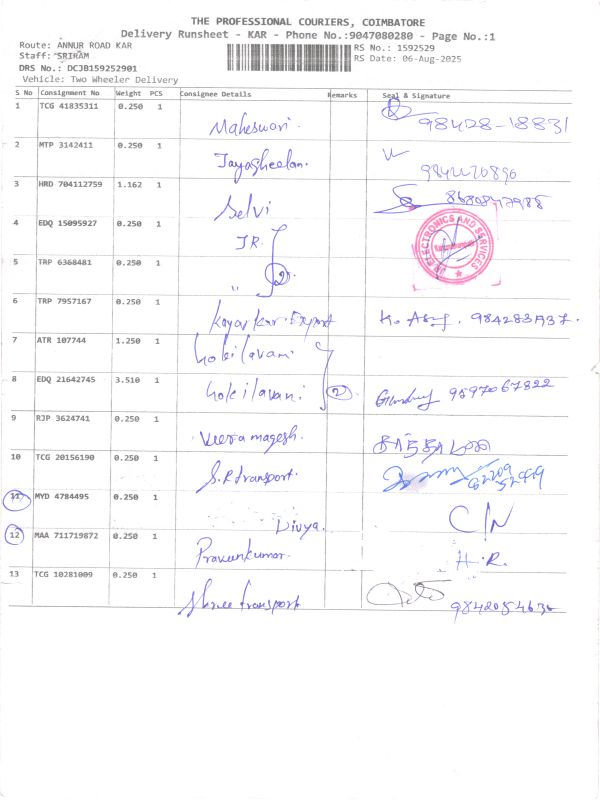 THE PROFESSIONAL COURIERS, COIMBATORE
Delivery Runsheet - KAR - Phone No.:9047080280 - Page No.:1
Route: ANNUR ROAD KAR
RS No.: 1592529
Staff: SRIRAM
RS Date: 06-Aug-2025
DRS No.: DCJB159252901
Vehicle: Two Wheeler Delivery
S No Consignment No Weight PCS Consignee Details Remarks Seal & Signature
1 TCG 41835311 0.250 1 Maheswori. 98428-18831
2 MTP 3142411 0.250 1 Jayasheelan.
3 HRD 704112759 1.162 1 Selvi
4 EDQ 15095927 0.250 1 JR.
JR ELECTRONICS AND SERVICES
5 TRP 6368481 0.250 1 " 2
6 TRP 7957167 0.250 1
7 ATR 107744 1.250 1 Gokilavani
8 EDQ 21642745 3.510 1 Gokilavani 2 9597067322
9 RJP 3624741 0.250 1 Veeramagesh.
10 TCG 20156190 0.250 1 S.R transport.
11 MYD 4784495 0.250 1 Divya. C/N
12 MAA 711719872 0.250 1 Praveenkumar. H.R.
13 TCG 10281009 0.250 1 Shree transport